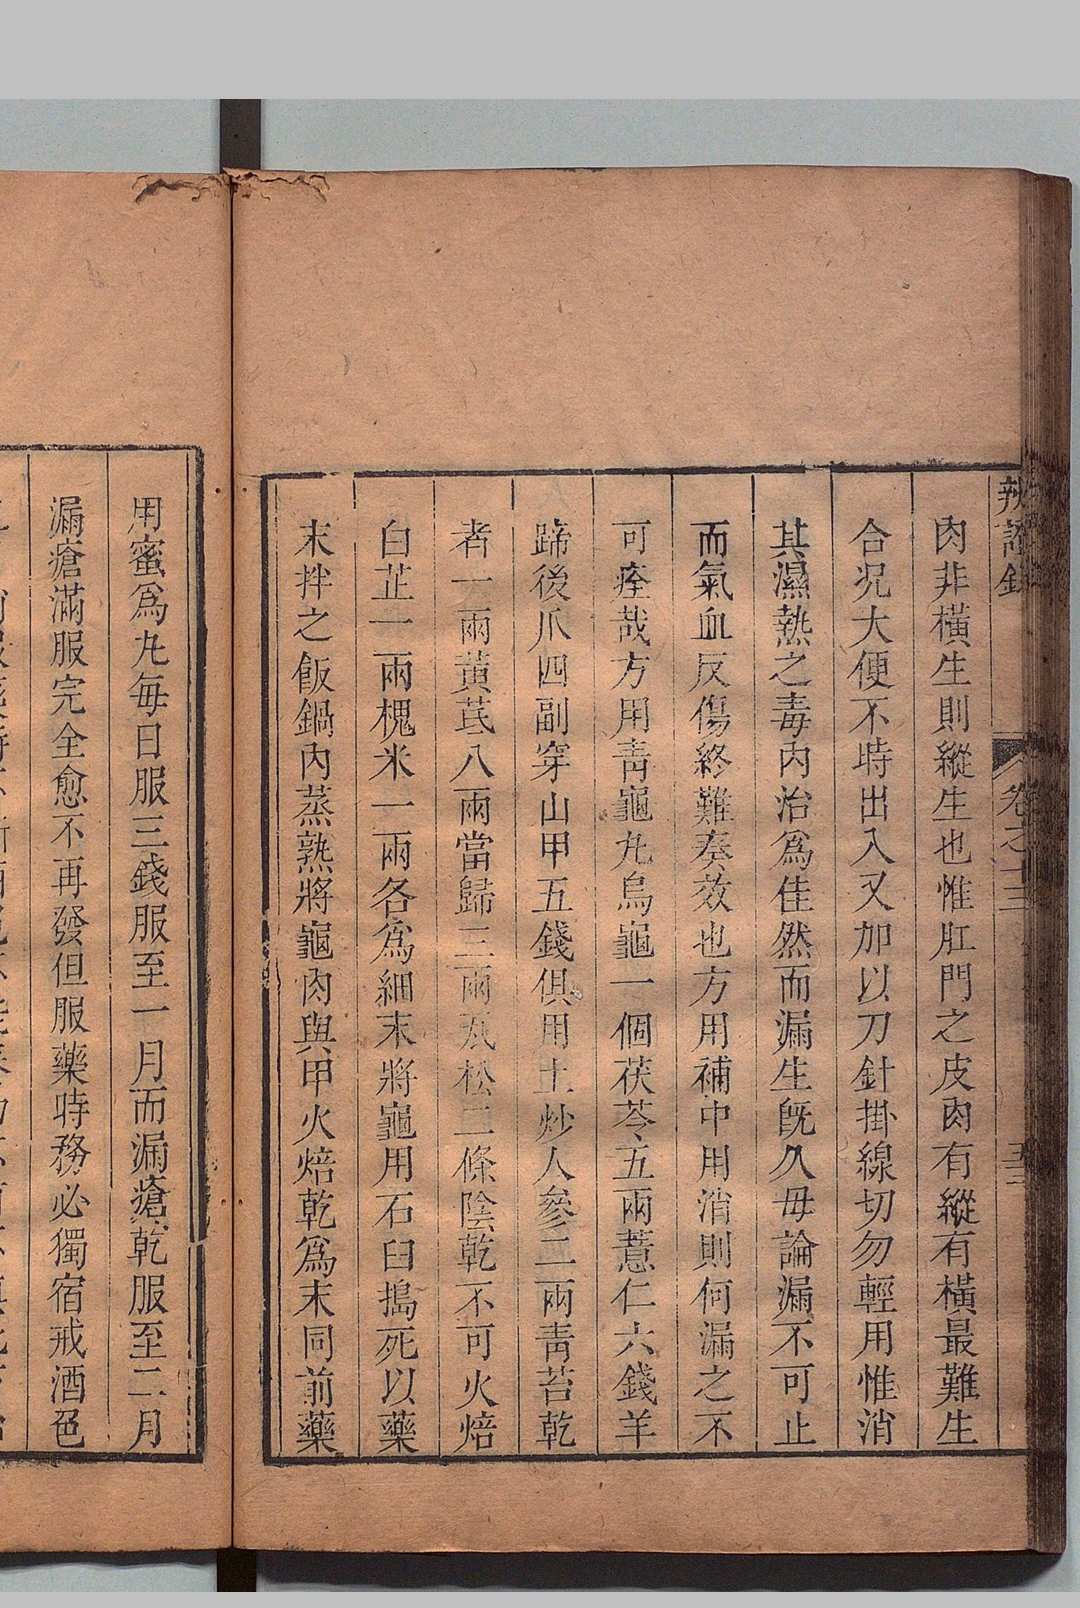 辨證錄 卷之十三
肉非橫生則縱生也惟肛門之皮肉有縱有橫最難生
合况大便不時出入又加以刀針掛線切勿輕用惟消
其濕熱之毒內治爲佳然而漏生旣久毋論漏不可止
而氣血反傷終難奏效也方用補中用消則何漏之不
可痊哉方用青龜丸烏龜一個茯苓五兩薏仁六錢羊
蹄後爪四副穿山甲五錢俱用土炒人參二兩青苔乾
者一兩黃芪八兩當歸三兩瓦松二條陰乾不可火焙
白芷一兩槐米一兩各爲細末將龜用石臼搗死以藥
末拌之飯鍋內蒸熟將龜肉與甲火焙乾爲末同前藥
用蜜爲丸每日服三錢服至一月而漏瘡乾服至二月
漏瘡滿服完全愈不再發但服藥時務必獨宿戒酒色